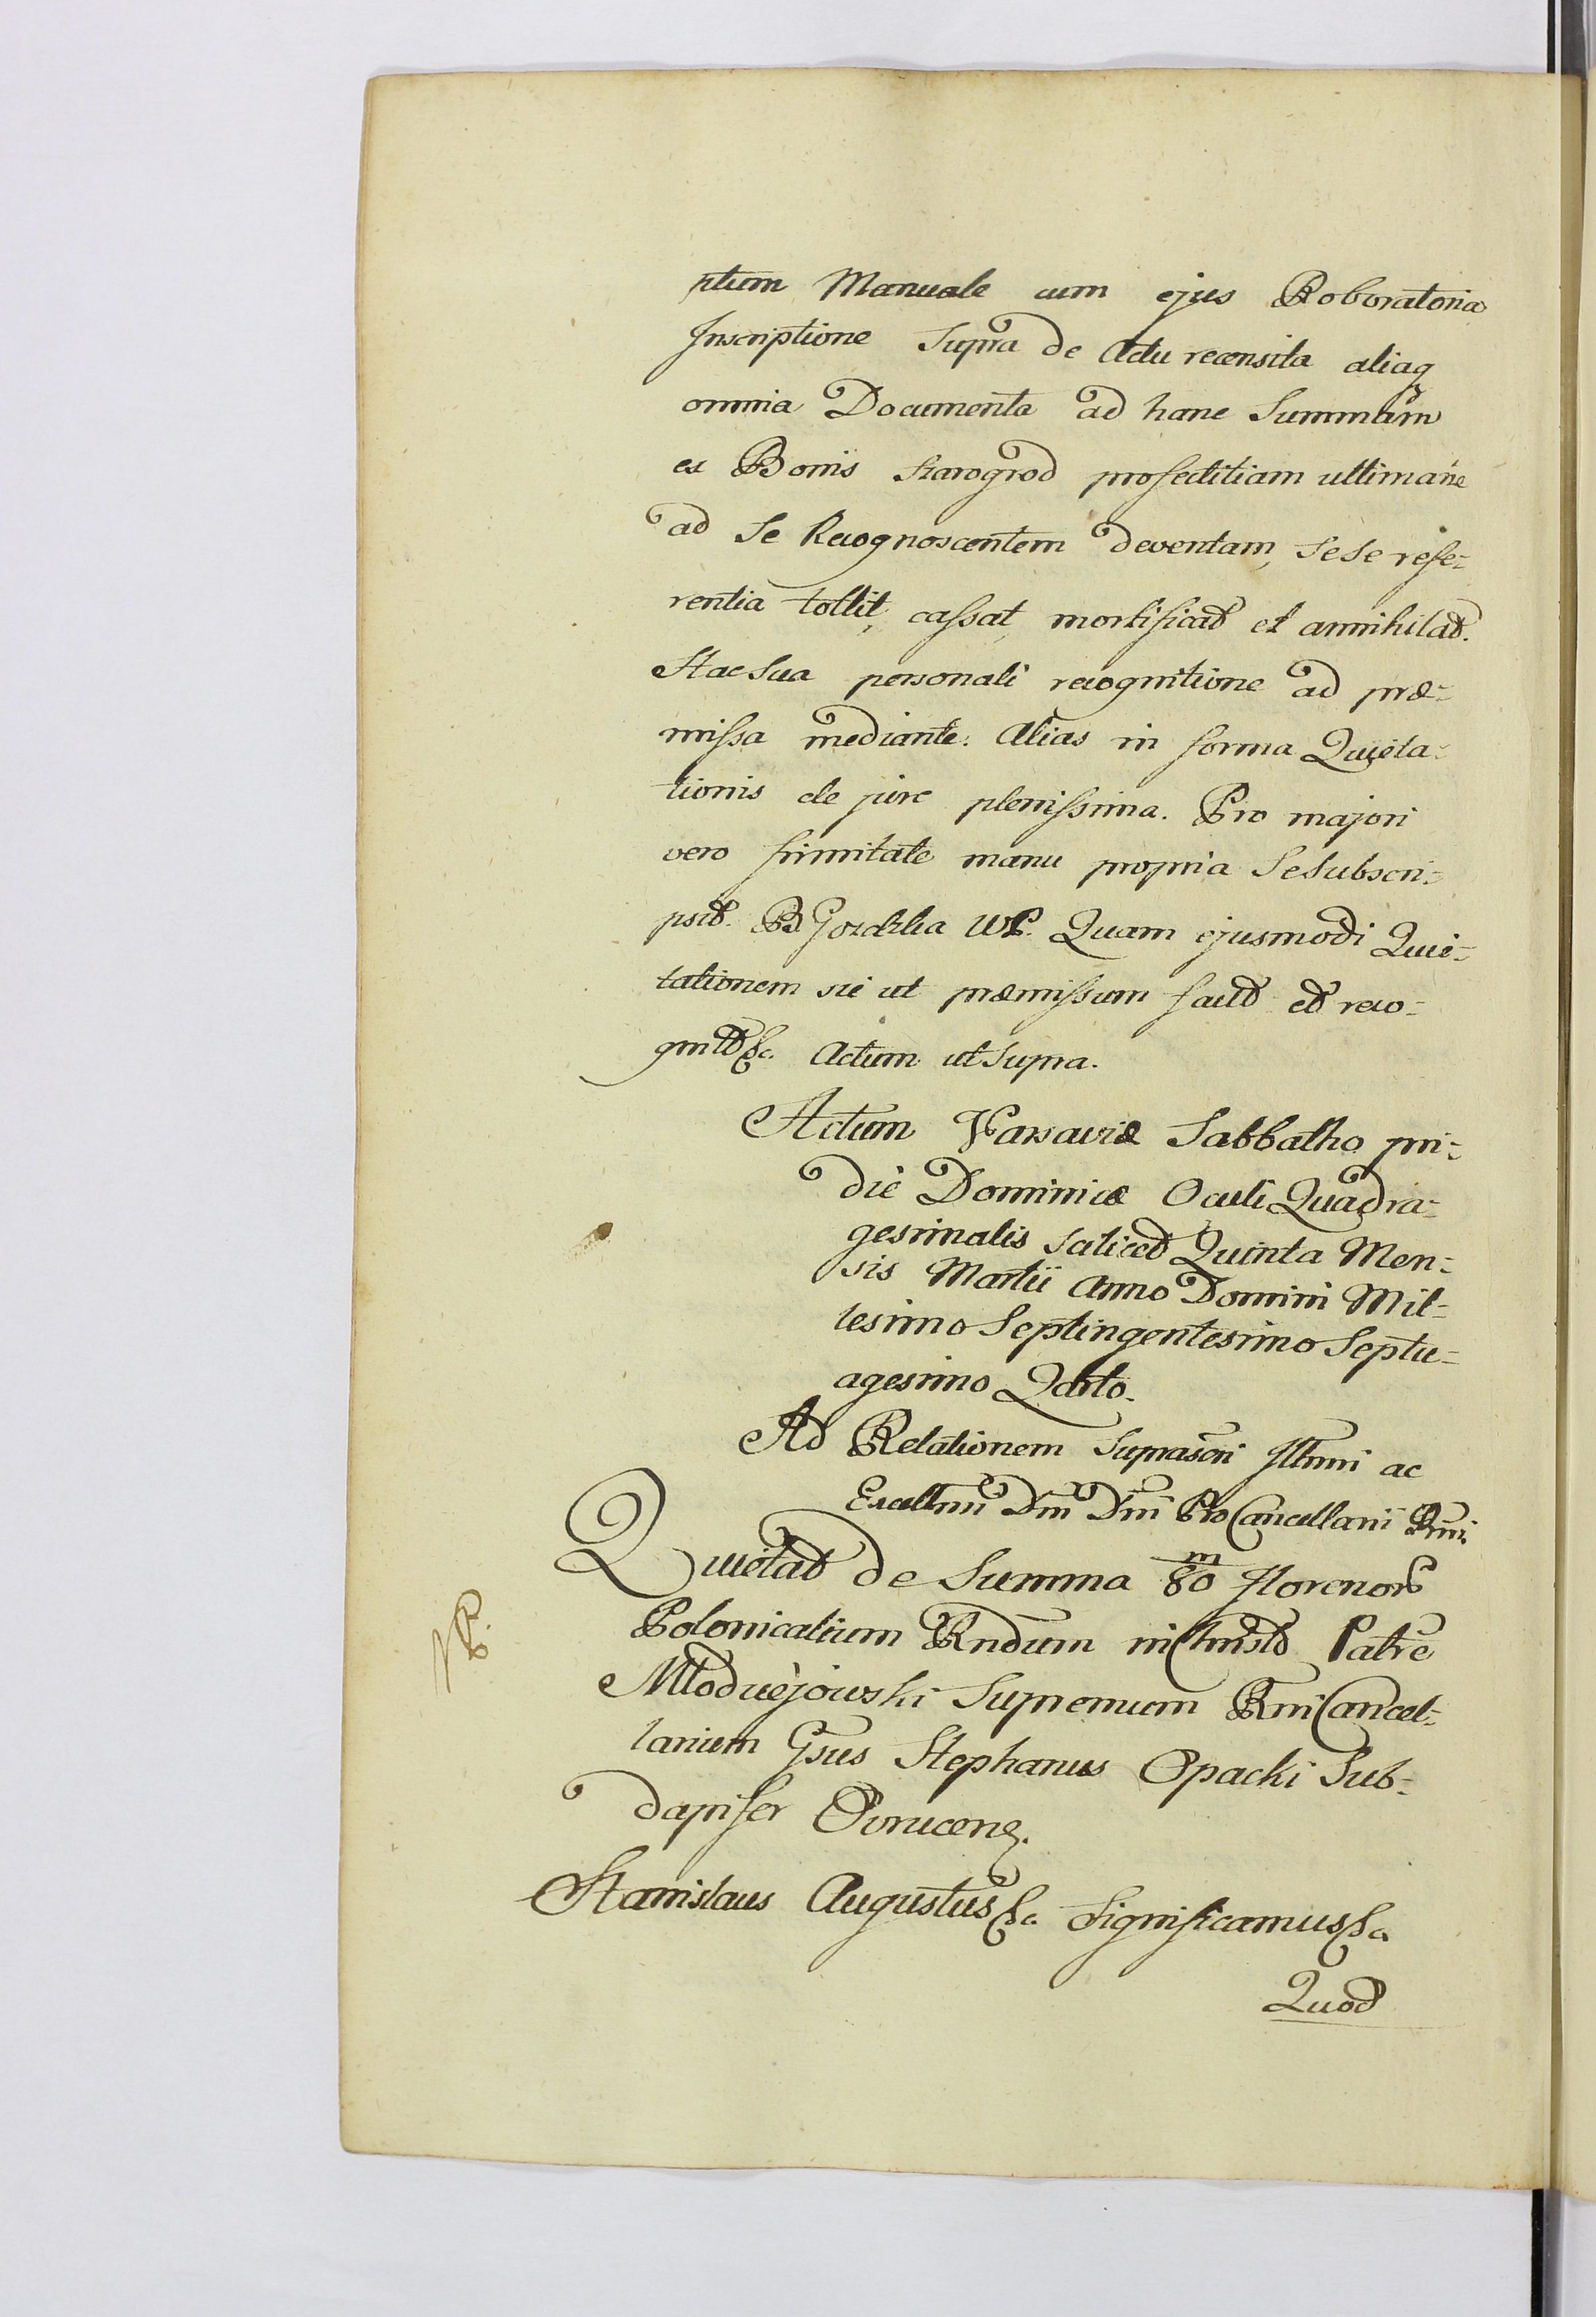 ptum Manuale cum ejus Roboratoria
Inscriptione Supra de Actu recensita aliaq
omnia Documenta ad hanc Summam
ex Bonis Szarogrod profectitiam ultimarie
ad Se Recognoscentem deventam, Sese refe=
rentia tollit, cassat, mortificat et annihilat.
Hac Sua personali recognitione ad præ=
missa mediante. Alias in forma Quieta=
tionis de jure plenissima. Pro majori
vero firmitate manu propria Se Subscri=
psit. B Gozdzka WP. Quam ejusmodi Quie=
tationem sic ut præmissum facit et reco=
gnit &c. Actum ut Supra.
Actum Varsaviæ Sabbatho pri=
die Dominicæ Oculi Quadra=
gesimalis scilicet Quinta Men=
sis Martii Anno Domini Mil=
lesimo Septingentesimo Septu=
agesimo Qarto.
Ad Relationem Suprascri Illmi ac
Excellmi Dni Dni ProCancellarii Rni
Quietat de Summa 80 m florenor
Polonicalium Rndum in Christo Patre
Młodziejowski Supremum Rni Cancel=
larium Gsus Stephanus Opacki Sub=
dapifer Ovrucen.
Stanislaus Augustus &c. Significamus &c.
Quod